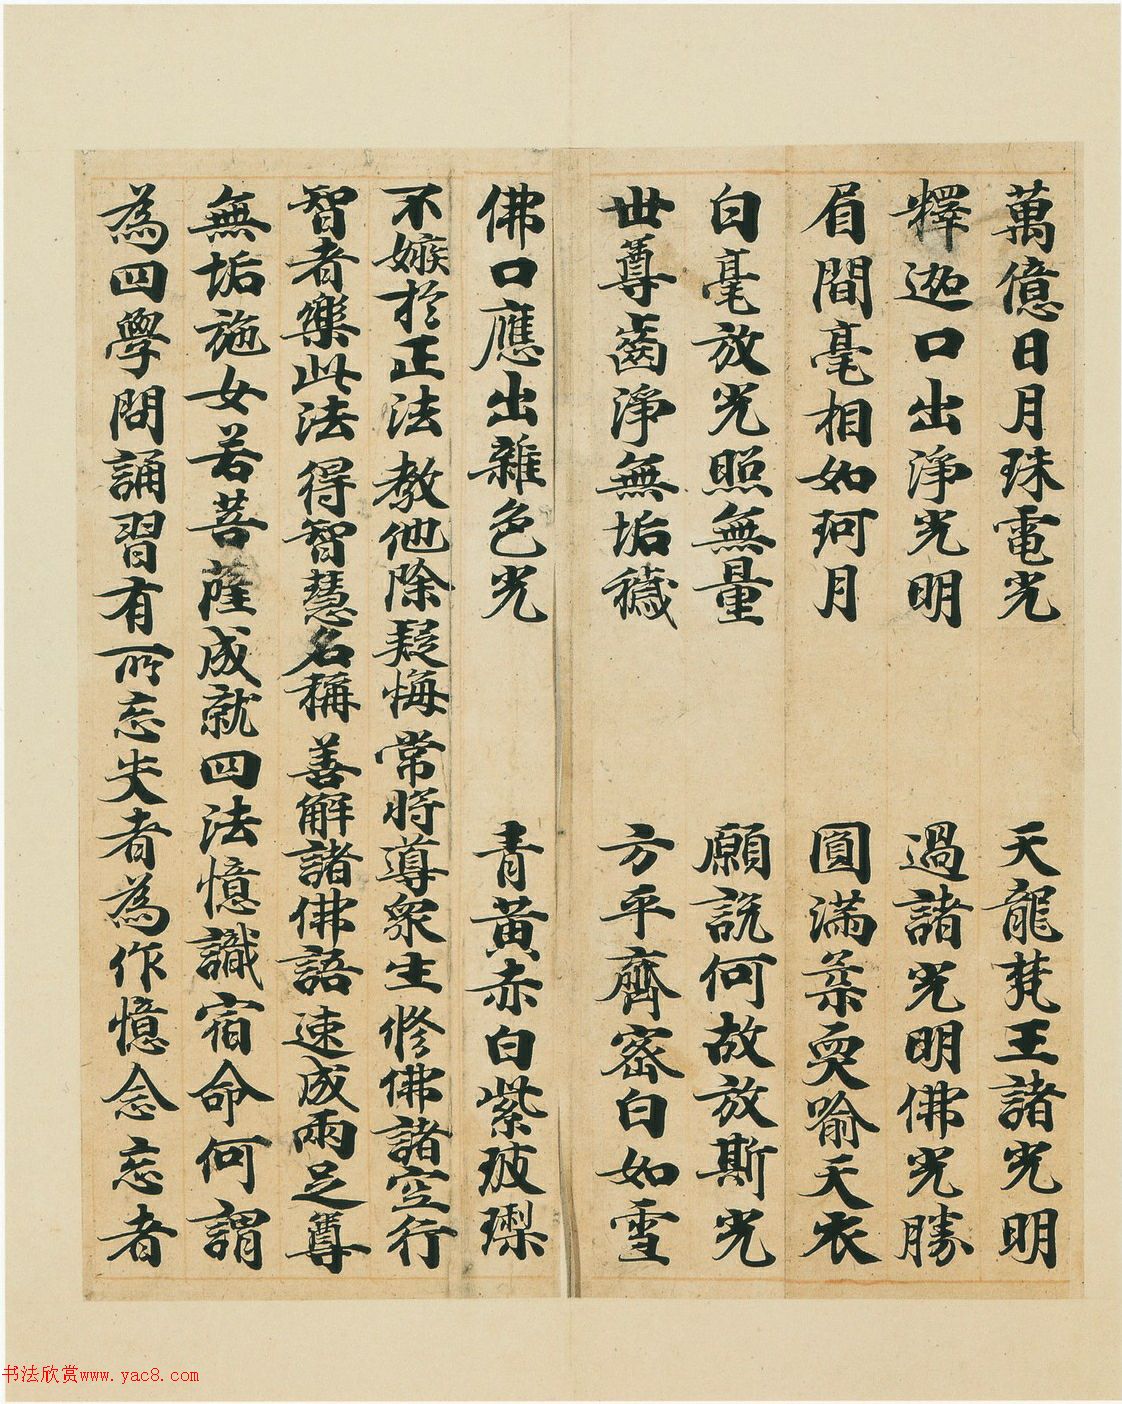 萬億日月珠電光　天龍梵王諸光明
釋迦口出淨光明　過諸光明佛光勝
眉間毫相如珂月　圓滿柔耎喻天衣
白毫放光照無量　願說何故放斯光
世尊齒淨無垢穢　方平齊密白如雪
佛口應出雜色光　青黃赤白紫玻瓈
不嫉於正法　教他除疑悔　常時導衆生　修佛諸空行
智者樂此法　得智慧名稱　善解諸佛語　速成兩足尊
無垢施女若菩薩成就四法憶識宿命何謂
為四學問誦習有所忘失者為作憶念忘者
书法欣赏www.yac8.com